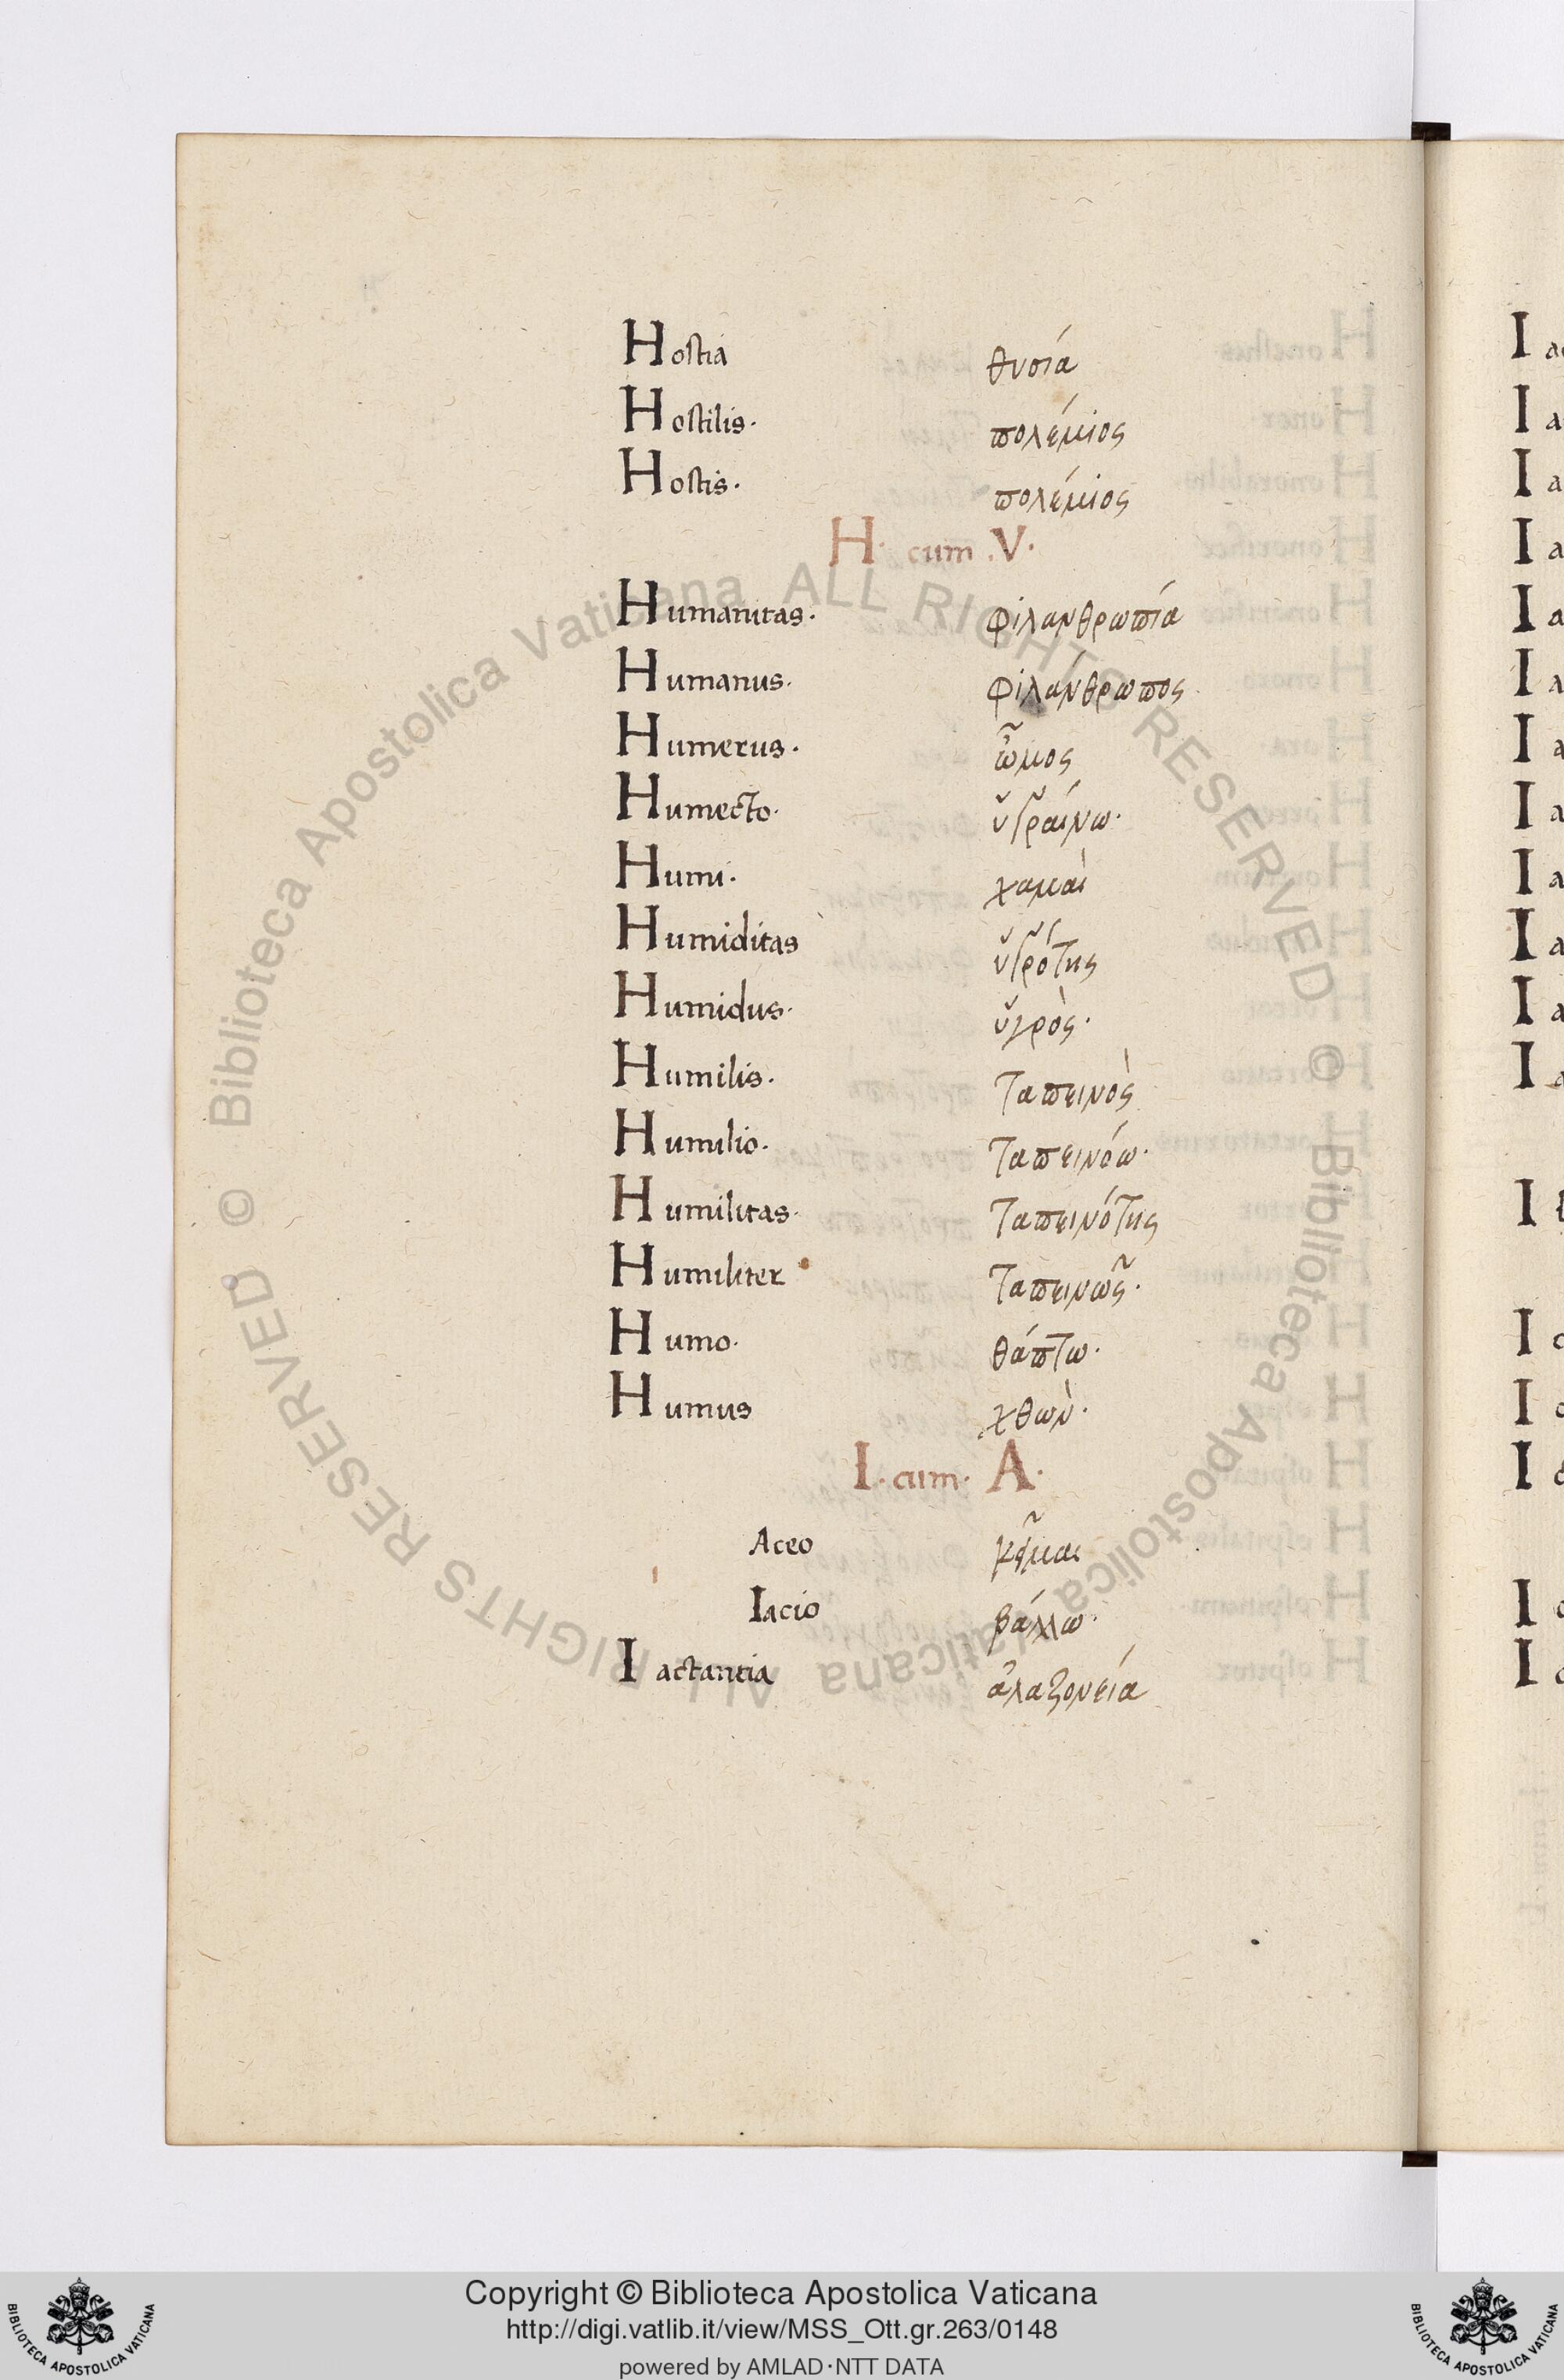 Hostia θυσία
Hostilis· πολέμιος
Hostis· πολέμιος
H· cum .V·
Humanitas· φιλανθρωπία
Humanus· φιλάνθρωπος
Humerus· ὦμος
Humecto· ὑγραίνω·
Humi· χαμαὶ
Humiditas ὑγρότης
Humidus· ὑγρὸς·
Humilis· ταπεινὸς
Humilio· ταπεινόω·
Humilitas· ταπεινότης
Humiliter ταπεινῶς·
Humo· θάπτω·
Humus χθὼν·
I· cum· A·
Aceo κῆμαι
Iacio βάλλω·
Iactantia ἀλαζονεία
© Biblioteca Apostolica Vaticana ALL RIGHTS RESERVED © Biblioteca Apostolica Vaticana ALL RIGHTS RESERVED
Copyright © Biblioteca Apostolica Vaticana
http://digi.vatlib.it/view/MSS_Ott.gr.263/0148
powered by AMLAD·NTT DATA
BIBLIOTECA APOSTOLICA VATICANA
BIBLIOTECA APOSTOLICA VATICANA